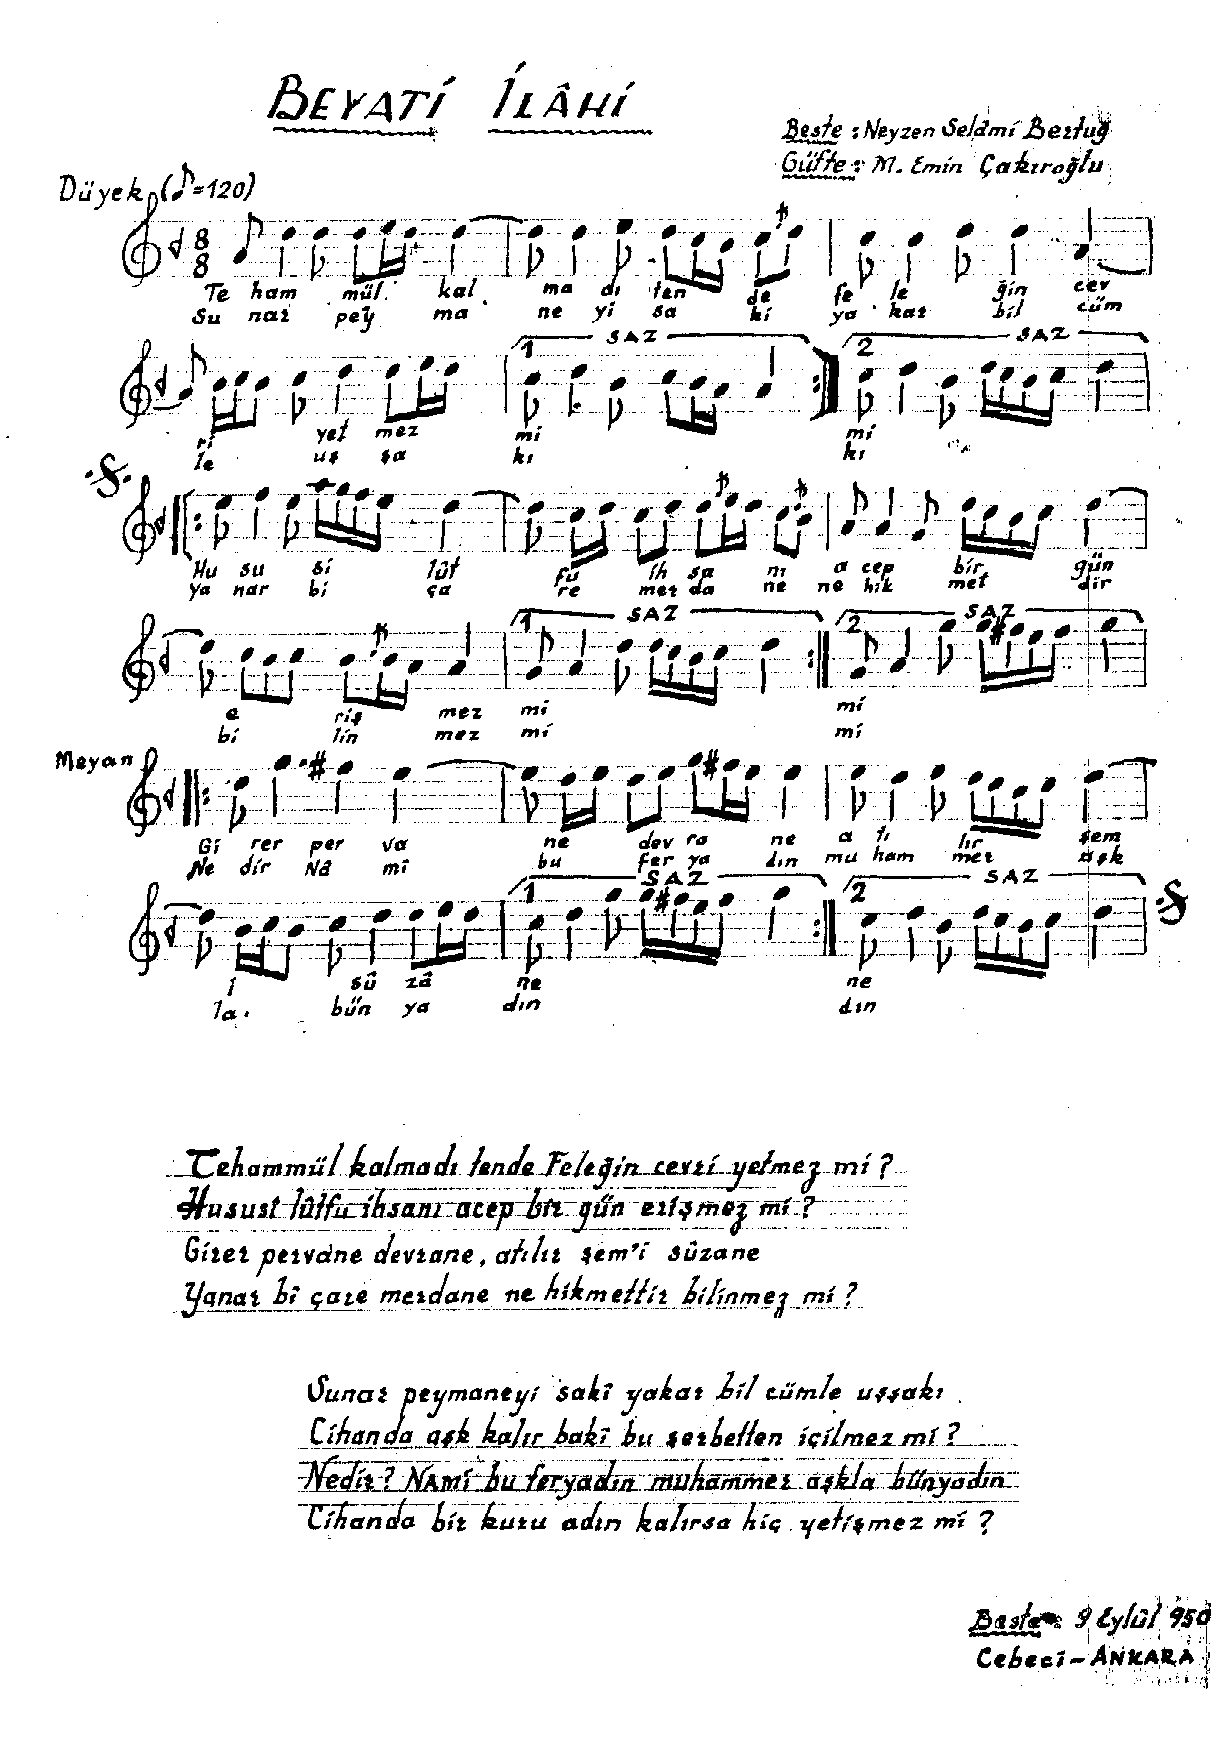 BEYATİ İLÂHİ
Beste : Neyzen Selâmi Bertuğ
Güfte : M. Emin Çakıroğlu
Düyek (♪=120)
8
8
Te ham mül kal ma dı ten de fe le ğin cev
Su nar pey ma ne yi sa ki ya kar bil cüm
1 SAZ 2 SAZ
ri yet mez mi mi
le uş şa kı kı
Hu su si lût fu ih sa nı a cep bir gün
ya nar bi ça re mer da ne ne hik met dir
1 SAZ 2 SAZ
e riş mez mi mi
bi lin mez mi mi
Meyan
Gi rer per va ne dev ra ne a tı lır şem
Ne dir Nâ mi bu fer ya dın mu ham mer aşk
1 SAZ 2 SAZ
i sû zâ ne ne
la bün ya dın dın
Tehammül kalmadı tende Feleğin cevri yetmez mi ?
Hususi lûtfu ihsanı acep bir gün erişmez mi ?
Girer pervane devrane, atılır şem'i sûzane
Yanar bî çare merdane ne hikmettir bilinmez mi ?
Sunar peymaneyi sakî yakar bil cümle uşşakı
Cihanda aşk kalır bakî bu şerbetten içilmez mi ?
Nedir ? NAMİ bu feryadın muhammer aşkla bünyadın
Cihanda bir kuru adın kalırsa hiç yetişmez mi ?
Beste : 9 Eylûl 950
Cebeci - ANKARA